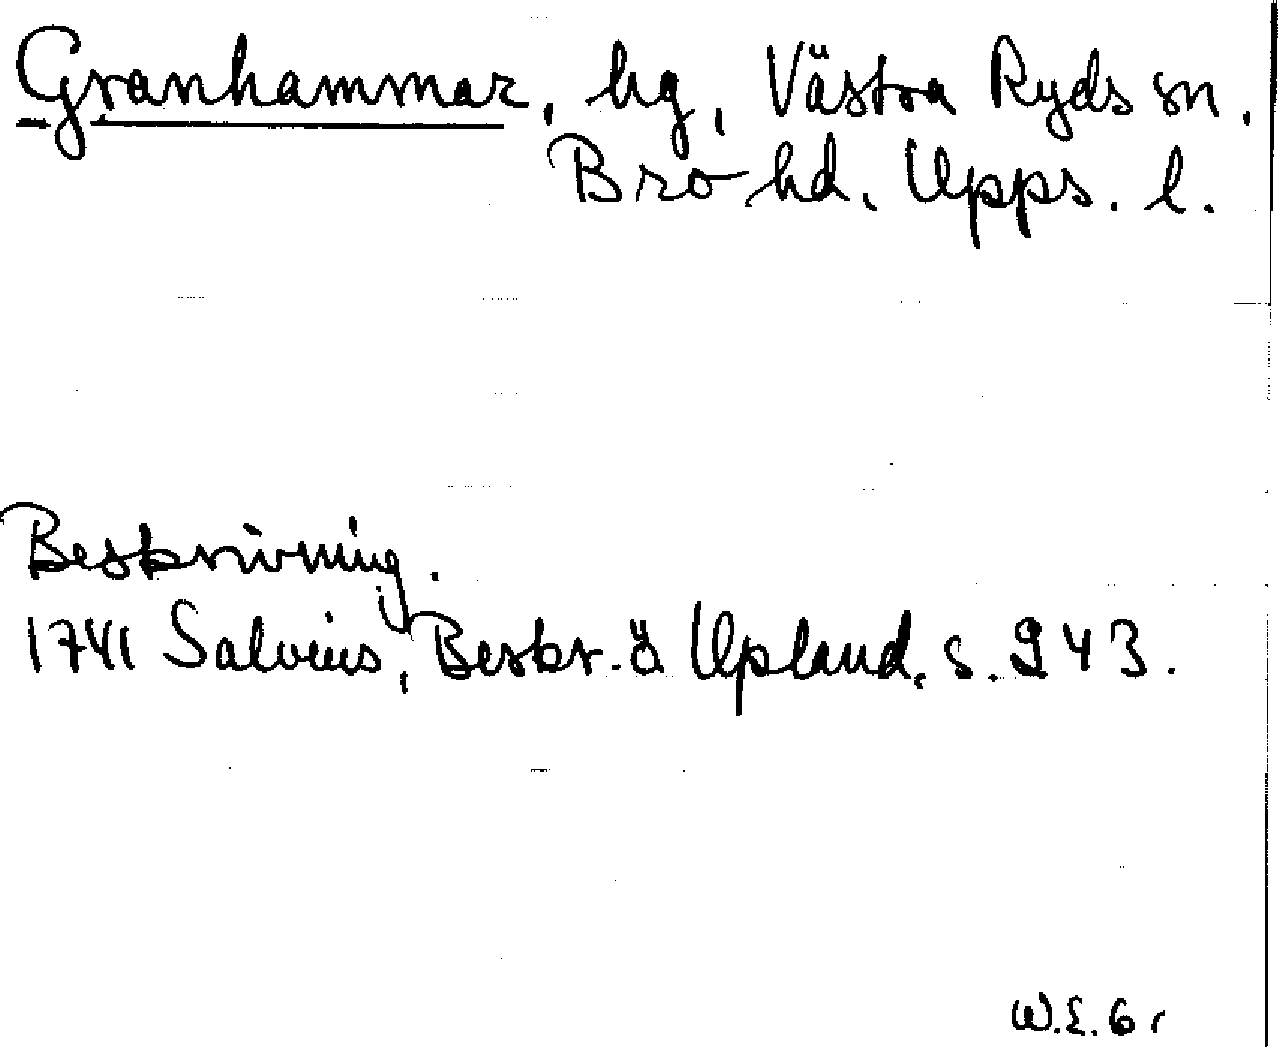 Granhammar, hg, Västra Ryds sn.
Bro hd. Upps. l.
Beskrivning.
1741 Salvius, Beskr. ö Upland, s. 243.
W.E. 6 r